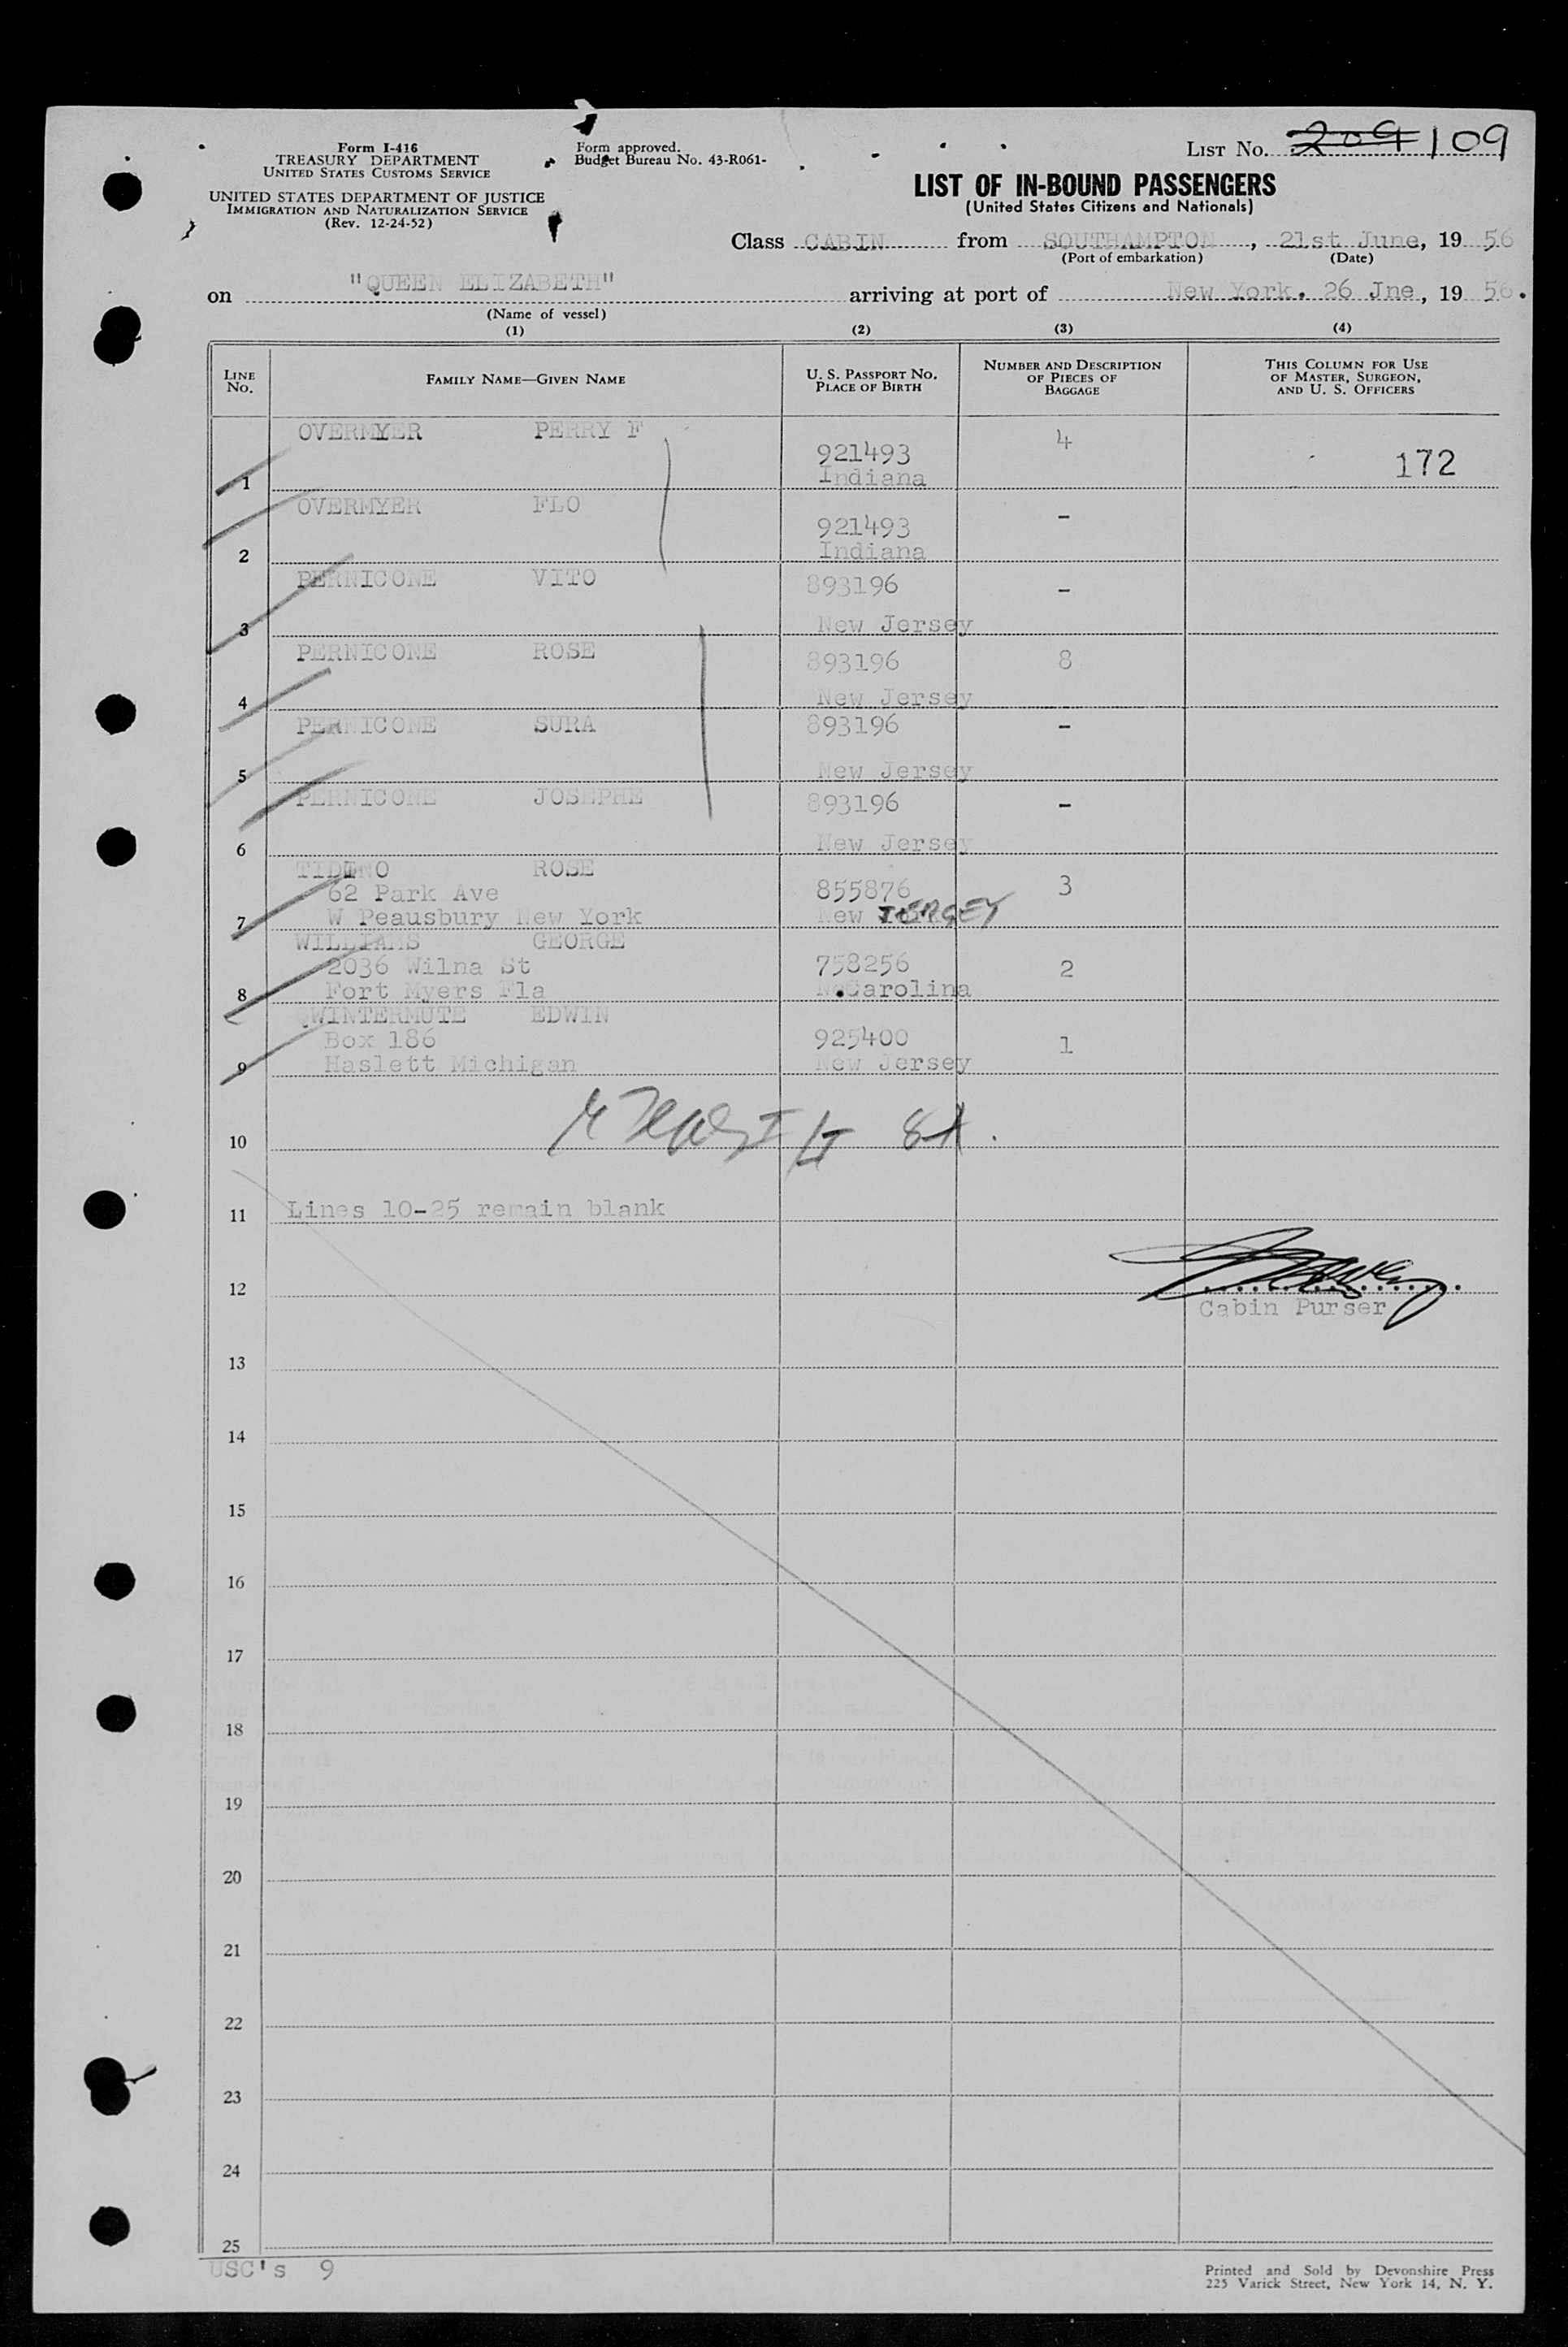 Form I-416
TREASURY DEPARTMENT
UNITED STATES CUSTOMS SERVICE
UNITED STATES DEPARTMENT OF JUSTICE
IMMIGRATION AND NATURALIZATION SERVICE
(Rev. 12-24-52)
Form approved.
Budget Bureau No. 43-R061-
LIST No. 209 109
LIST OF IN-BOUND PASSENGERS
(United States Citizens and Nationals)
Class CABIN from SOUTHAMPTON, 21st June, 19 56
(Port of embarkation) (Date)
on "QUEEN ELIZABETH" arriving at port of New York. 26 Jne, 19 56.
(Name of vessel)
(1) (2) (3) (4)
LINE No. FAMILY NAME—GIVEN NAME U. S. PASSPORT NO. PLACE OF BIRTH NUMBER AND DESCRIPTION OF PIECES OF BAGGAGE THIS COLUMN FOR USE OF MASTER, SURGEON, AND U. S. OFFICERS
OVERMYER PERRY F 4
921493
172
1 Indiana
OVERMYER FLO -
921493
2 Indiana
PERNICONE VITO 893196 -
3 New Jersey
PERNICONE ROSE 893196 8
4 New Jersey
PERNICONE SURA 893196 -
5 New Jersey
PERNICONE JOSEPHE 893196 -
6 New Jersey
ROSE
62 Park Ave 855876 3
7 W Peausbury New York New JERSEY
WILLIAMS GEORGE
2036 Wilna St 758256 2
8 Fort Myers Fla No.Carolina
WINTERMUTE EDWIN
Box 186 925400 1
9 Haslett Michigan New Jersey
10
11 Lines 10-25 remain blank
12
Cabin Purser
13
14
15
16
17
18
19
20
21
22
23
24
25
USC's 9
Printed and Sold by Devonshire Press
225 Varick Street, New York 14, N. Y.